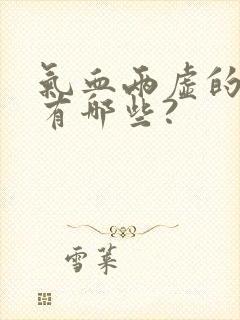 氣血兩虛的
有哪些?
雪萊